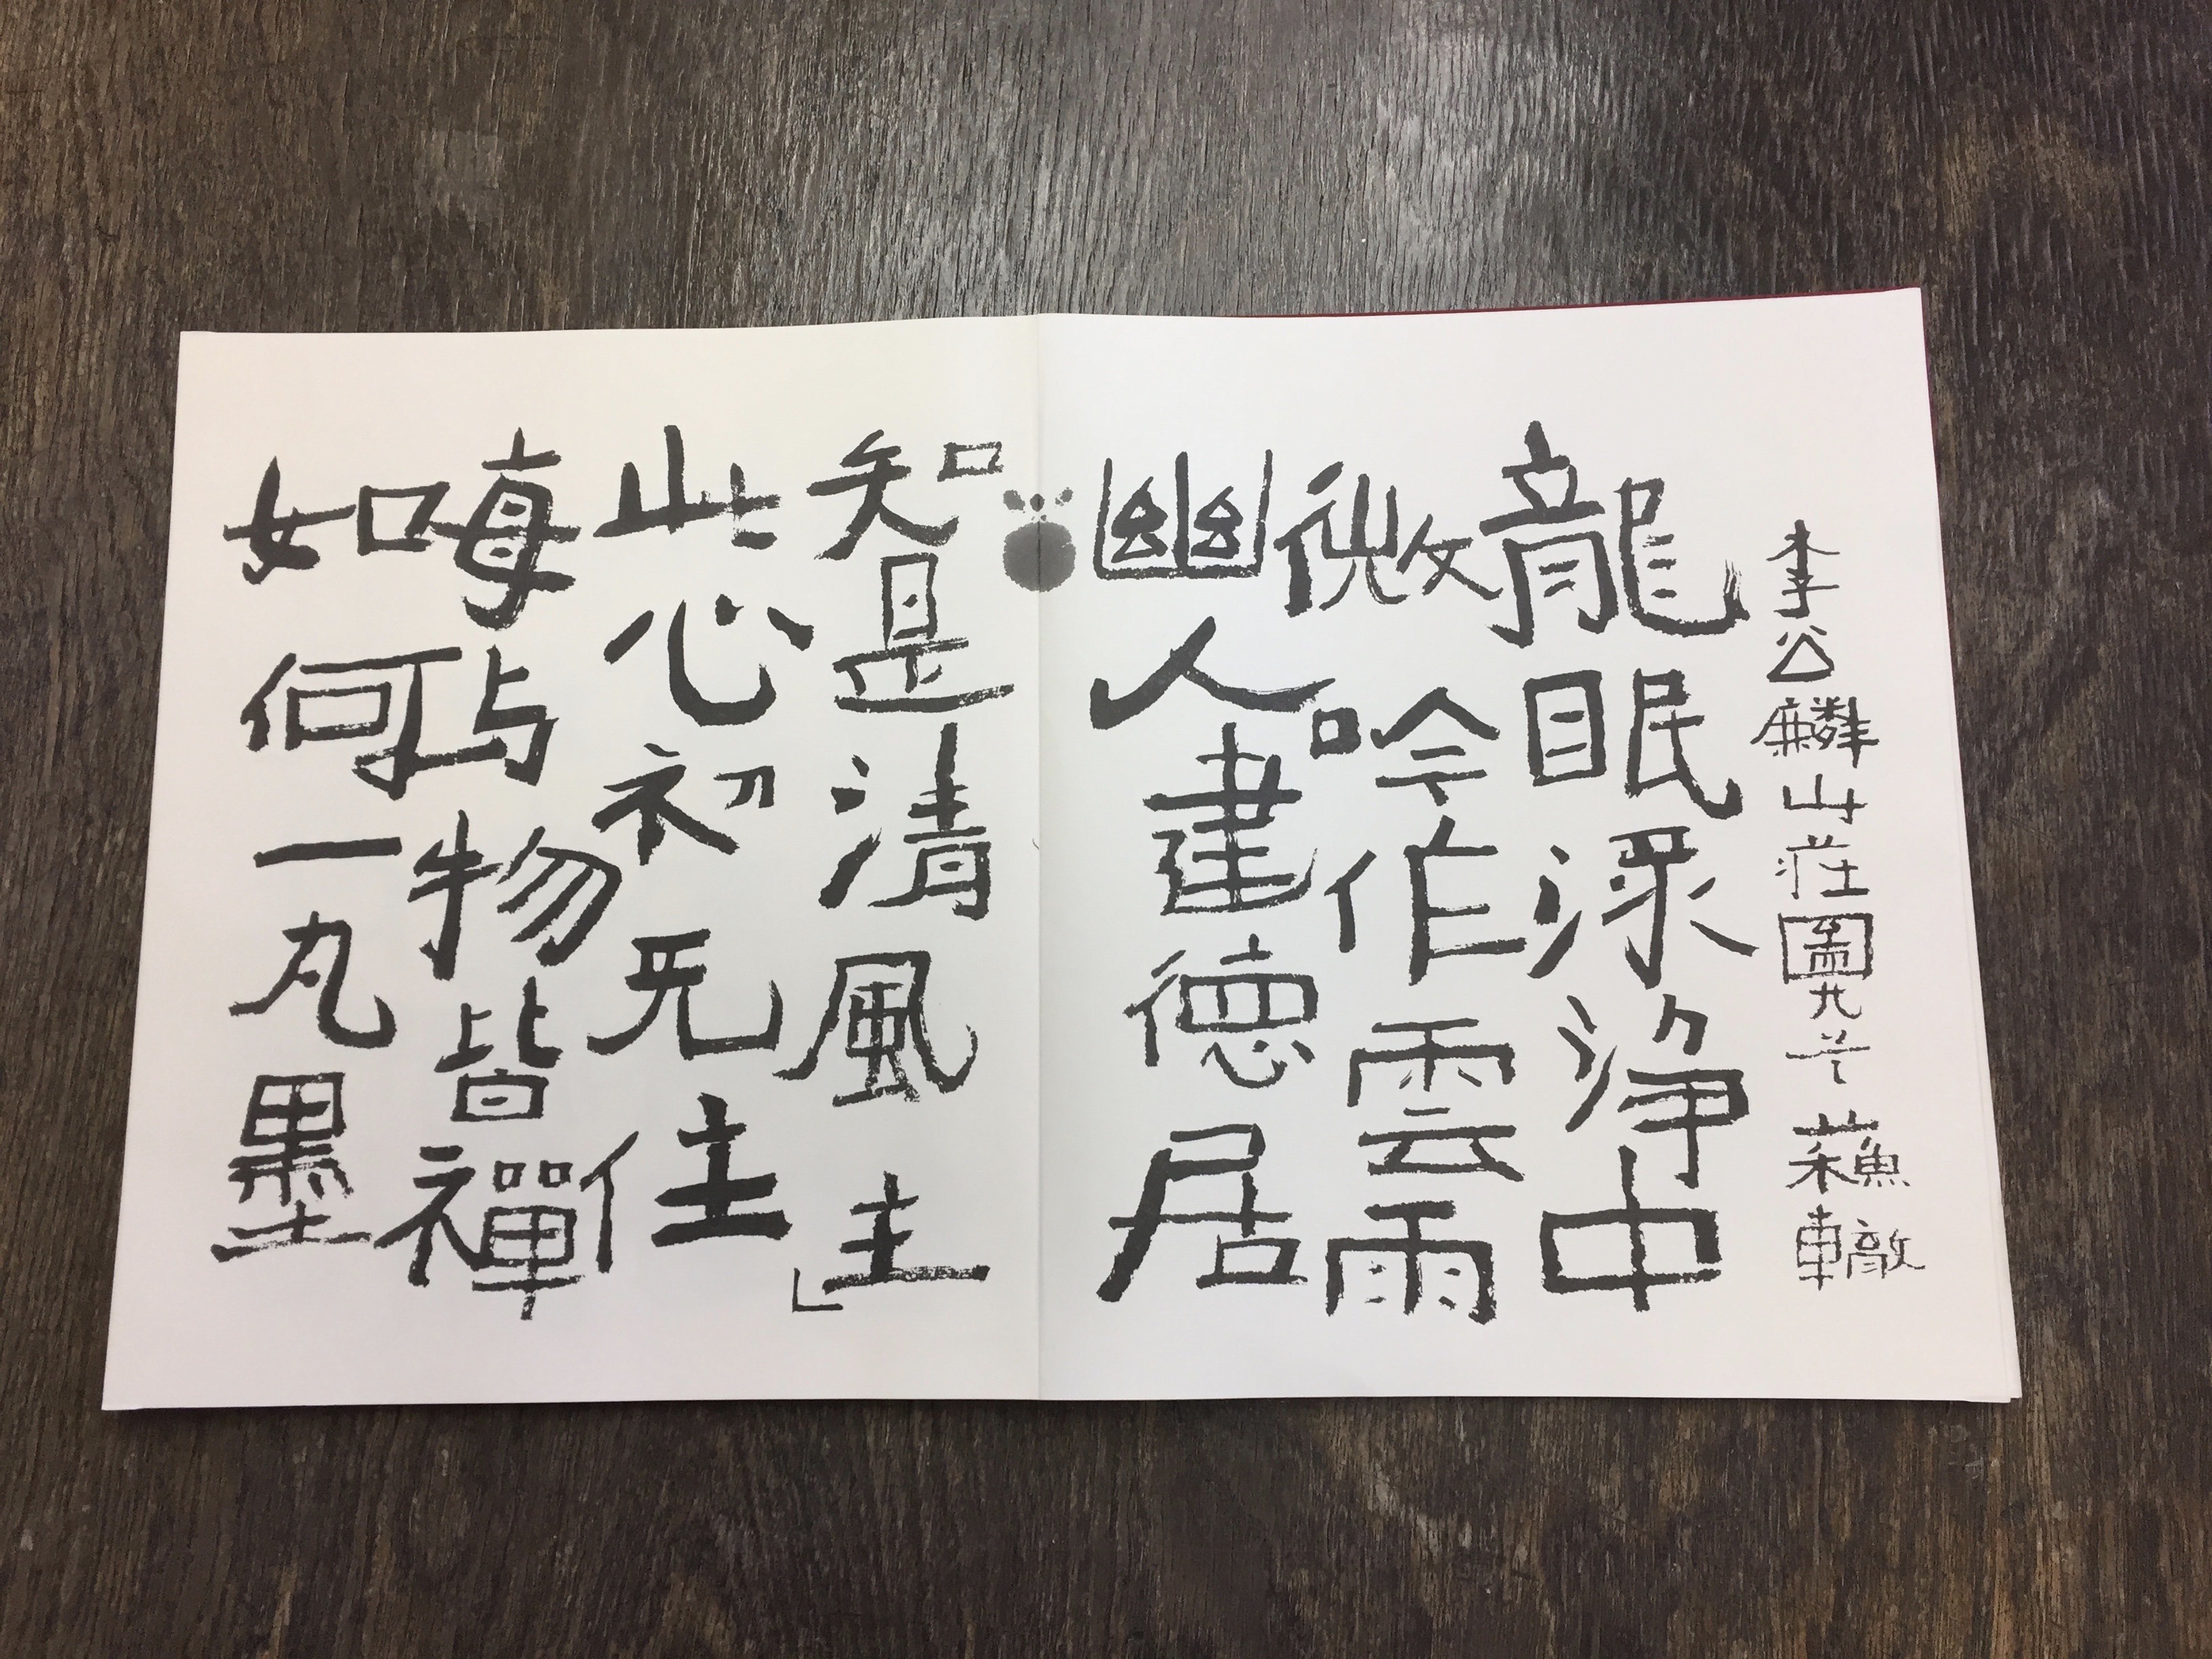 李公麟山莊圖廿首 蘇轍
龍眠淥淨中
微吟作雲雨
幽人建德居
知是清風主」
此心初无住
每与物皆禪
如何一丸墨